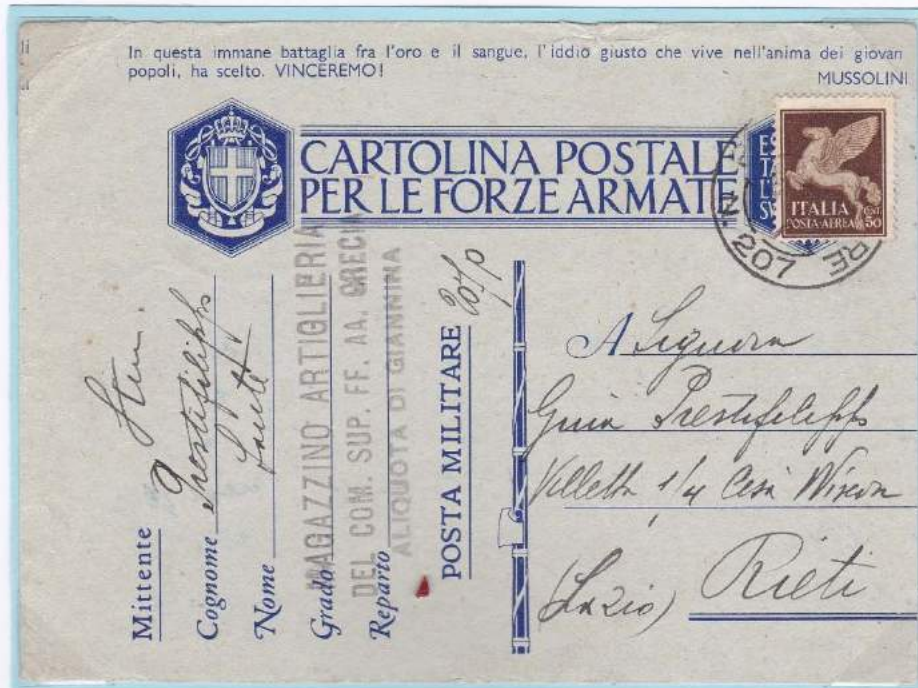 In questa immane battaglia fra l'oro e il sangue, l'iddio giusto che vive nell'anima dei giovan
popoli, ha scelto. VINCEREMO!
MUSSOLINI
CARTOLINA POSTALE
PER LE FORZE ARMATE
ITALIA
POSTA-AEREA
CENT.
50
N. 207
RE
Mittente
Cognome Prestifilipps
Nome
Grado
Reparto
MAGAZZINO ARTIGLIERIA
DEL COM. SUP. FF. AA. GRECIA
ALIQUOTA DI GIANNINA
POSTA MILITARE 207/p
A Signora
Prestifilipps
Villetta 1/4
(Lazio) Rieti